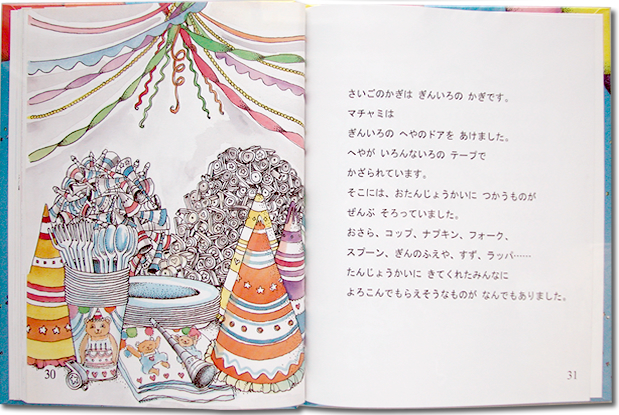 さいごのかぎは ぎんいろの かぎです。
マチャミは
ぎんいろの へやのドアを あけました。
へやが いろんないろの テープで
かざられています。
そこには、おたんじょうかいに つかうものが
ぜんぶ そろっていました。
おさら、コップ、ナプキン、フォーク、
スプーン、ぎんのふえや、すず、ラッパ……
たんじょうかいに きてくれたみんなに
よろこんでもらえそうなものが なんでもありました。
30
31